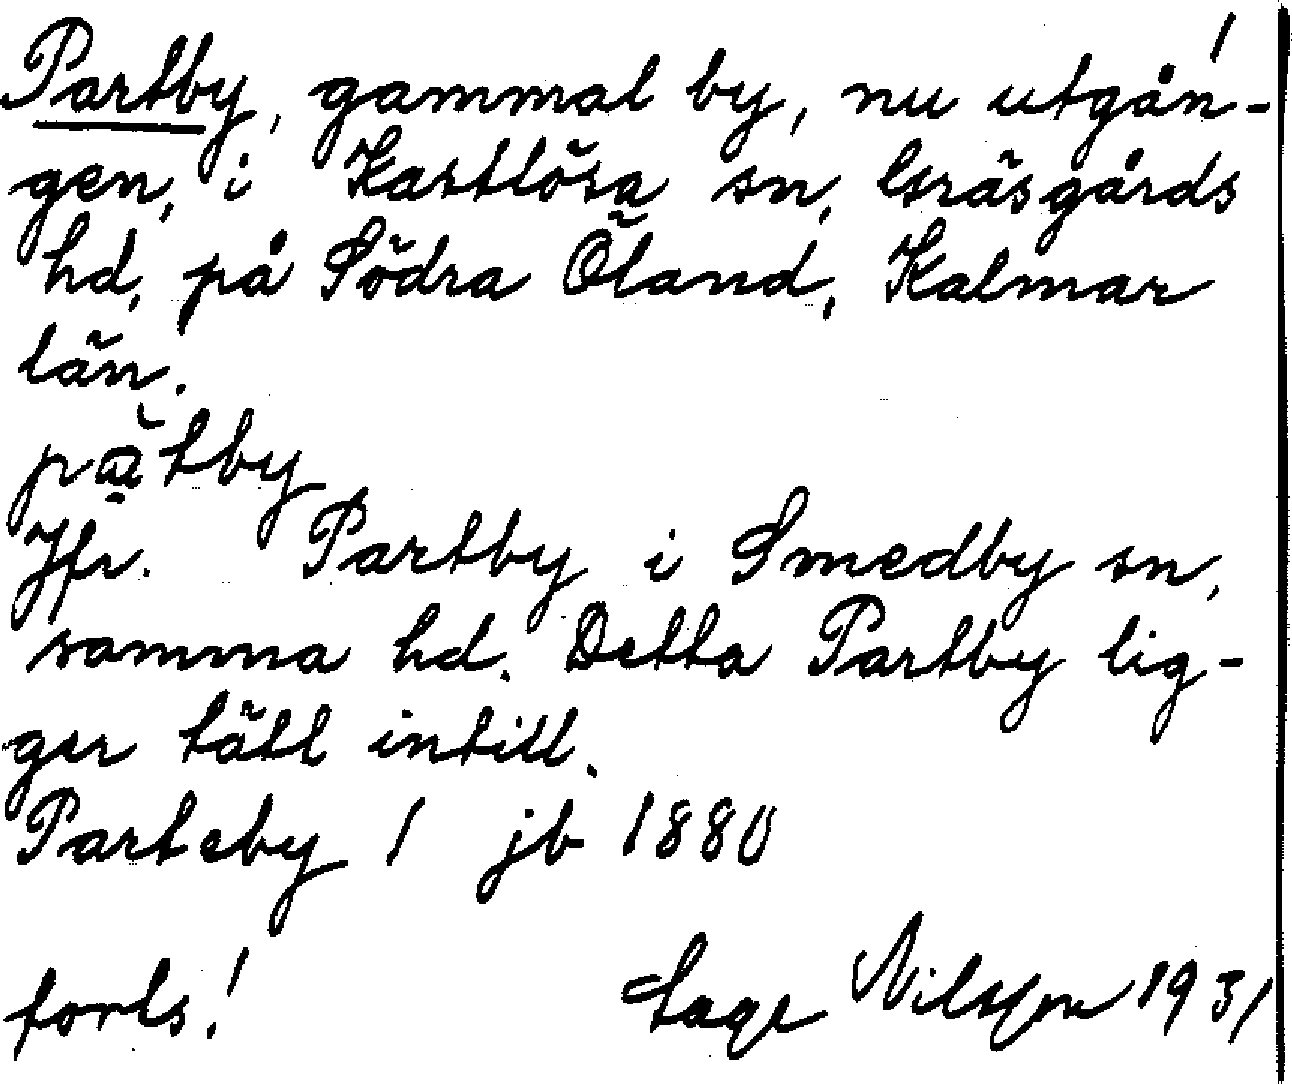 1
Partby, gammal by, nu utgån-
gen, i Kastlösa sn, Gräsgårds
hd, på Södra Öland, Kalmar
län.
Jfr. Partby i Smedby sn,
samma hd. Detta Partby lig-
ger tätt intill.
Parteby 1 jb 1880
forts! Lage Nilsson 1931